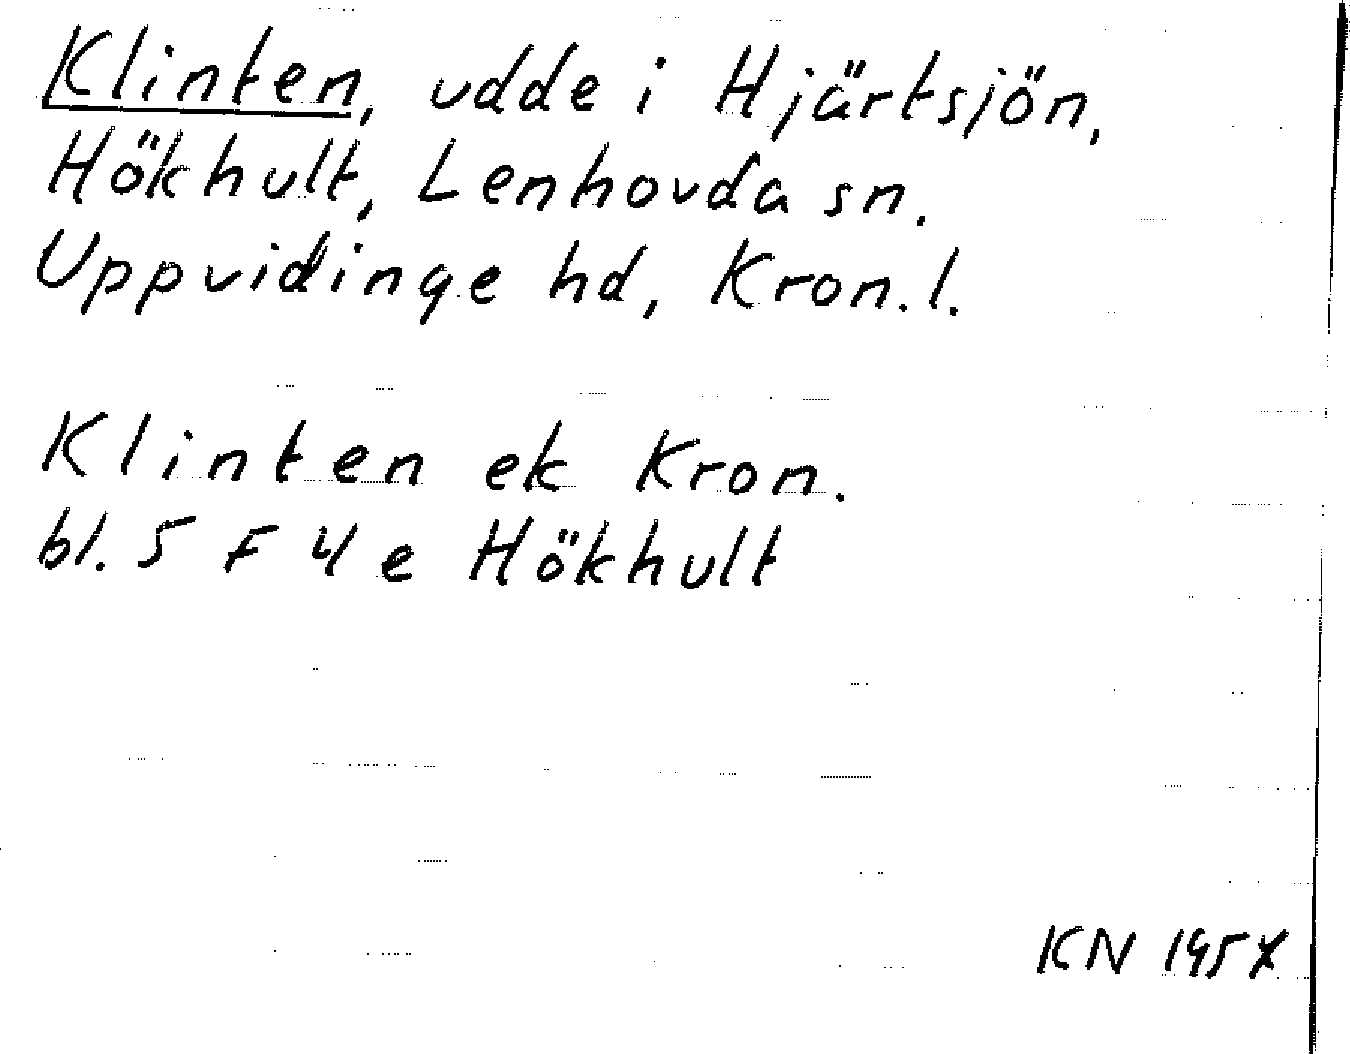 Klinten, udde i Hjärtsjön,
Hökhult, Lenhovda sn.
Uppvidinge hd, Kron. l.
Klinten ek Kron.
bl. 5 F 4 e Hökhult
KN